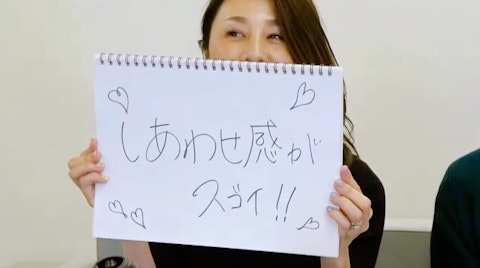 しあわせ感が
スゴイ!!